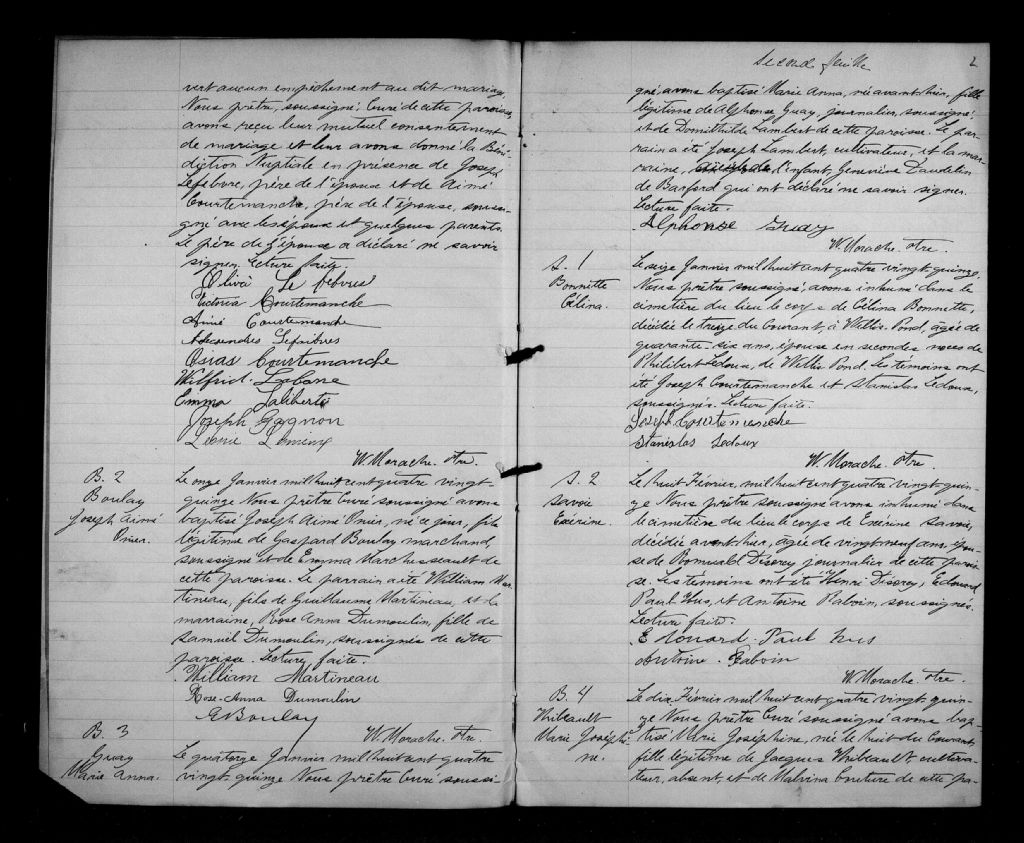 vert aucun empêchement au dit mariage,
Nous prêtre, soussigné, Curé de cette paroisse,
avons reçu leur mutuel consentement
de mariage et leur avons donné la Béné-
diction Nuptiale en présence de Joseph
Lefebvre, père de l'époux et de Aimé
Courtemanche, père de l'épouse, soussi-
gné avec les époux et quelques parents.
Le père de l'époux a déclaré ne savoir
signer. Lecture faite.
Victoria Courtemanche
Aimé Courtemanche
Osias Courtemanche
Wilfrid Labarre
Emma Laliberté
Joseph Gagnon
W. Morache. Ptre.
B. 2
Boulay
Joseph Aimé
Omer.
Le onze Janvier mil huit cent quatre vingt-
quinze Nous prêtre Curé soussigné avons
baptisé Joseph Aimé Omer, né ce jour, fils
légitime de Gaspard Boulay marchand,
soussigné et de Emma Marchesseault de
cette paroisse. Le parrain a été William Mar-
tineau, fils de Guillaume Martineau, et la
marraine, Rose Anna Dumoulin, fille de
Samuel Dumoulin, soussignés de cette
paroisse. Lecture faite.
William Martineau
Rose-Anna Dumoulin
G Boulay
W. Morache. Ptre.
B. 3
Guay
Marie Anna.
Le quatorze Janvier mil huit cent quatre
vingt-quinze Nous prêtre Curé soussi-
Second feuille
2
gné avons baptisé Marie Anna, né avant-hier, fille
légitime de Alphonse Guay, journalier, soussigné
et de Domithilde Lambert de cette paroisse. Le par-
rain a été Joseph Lambert, cultivateur, et la mar-
raine, l'enfant, Geneviève Daudelin
de Barford qui ont déclaré ne savoir signer.
Lecture faite.
Alphonse Guay
W. Morache. Ptre.
S. 1
Bonnette
Célina.
Le seize Janvier mil huit cent quatre vingt-quinze,
Nous prêtre soussigné, avons inhumé dans le
cimetière du lieu le corps de Célina Bonnette,
décédée le treize du Courant, à Willis Pond, âgée de
quarante-six ans, épouse en secondes noces de
Philibert Ledoux, de Willis Pond. Les témoins ont
été Joseph Courtemanche et Stanislas Ledoux,
soussignés. Lecture faite.
Joseph Courtemanche
Stanislas Ledoux
W. Morache. Ptre.
S. 2
Savoie
Exérine.
Le huit Février, mil huit cent quatre vingt-quin-
ze Nous prêtre soussigné avons inhumé dans
le cimetière du lieu le corps de Exérine Savoie,
décédée avant-hier, âgée de vingt-neuf ans, épou-
se de Romuald Disorcy journalier de cette parois-
se. Les témoins ont été Henri Disorcy, Edouard
Paul Hus, et Antoine Raboin, soussignés.
Lecture faite.
Edouard Paul Hus
Antoine Raboin
W. Morache. Ptre.
B. 4
Thibeault
Marie Joséphi-
ne.
Le dix Février mil huit cent quatre vingt-quin-
ze Nous prêtre Curé soussigné avons bap-
tisé Marie Joséphine, née le huit du Courant,
fille légitime de Jacques Thibeault cultiva-
teur, absent, et de Malvina Couture de cette pa-